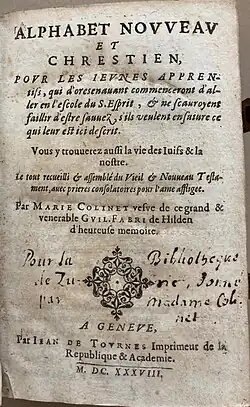 ALPHABET NOVVEAV
ET
CHRESTIEN,
POVR LES IEVNES APPREN-
tifs, qui d'oresenauant commenceront d'al-
ler en l'escole du S. Esprit, & ne scauroyent
faillir d'estre sauuez, s'ils veulent ensuiure ce
qui leur est ici descrit.
Vous y trouuerez aussi la vie des Iuifs & la
nostre.
Le tout recueilli & assemblé du Vieil & Nouueau Testa-
ment, auec prieres consolatoires pour l'ame affligee.
Par MARIE COLINET vefve de ce grand &
venerable GVIL. FABRI de Hilden
d'heureuse memoire.
Pour la Bibliotheque
de Zu- donné
par Madame Coli-
net
A GENEVE,
Par IEAN DE TOVRNES Imprimeur de la
Republique & Academie.
M. DC. XXXVIII.